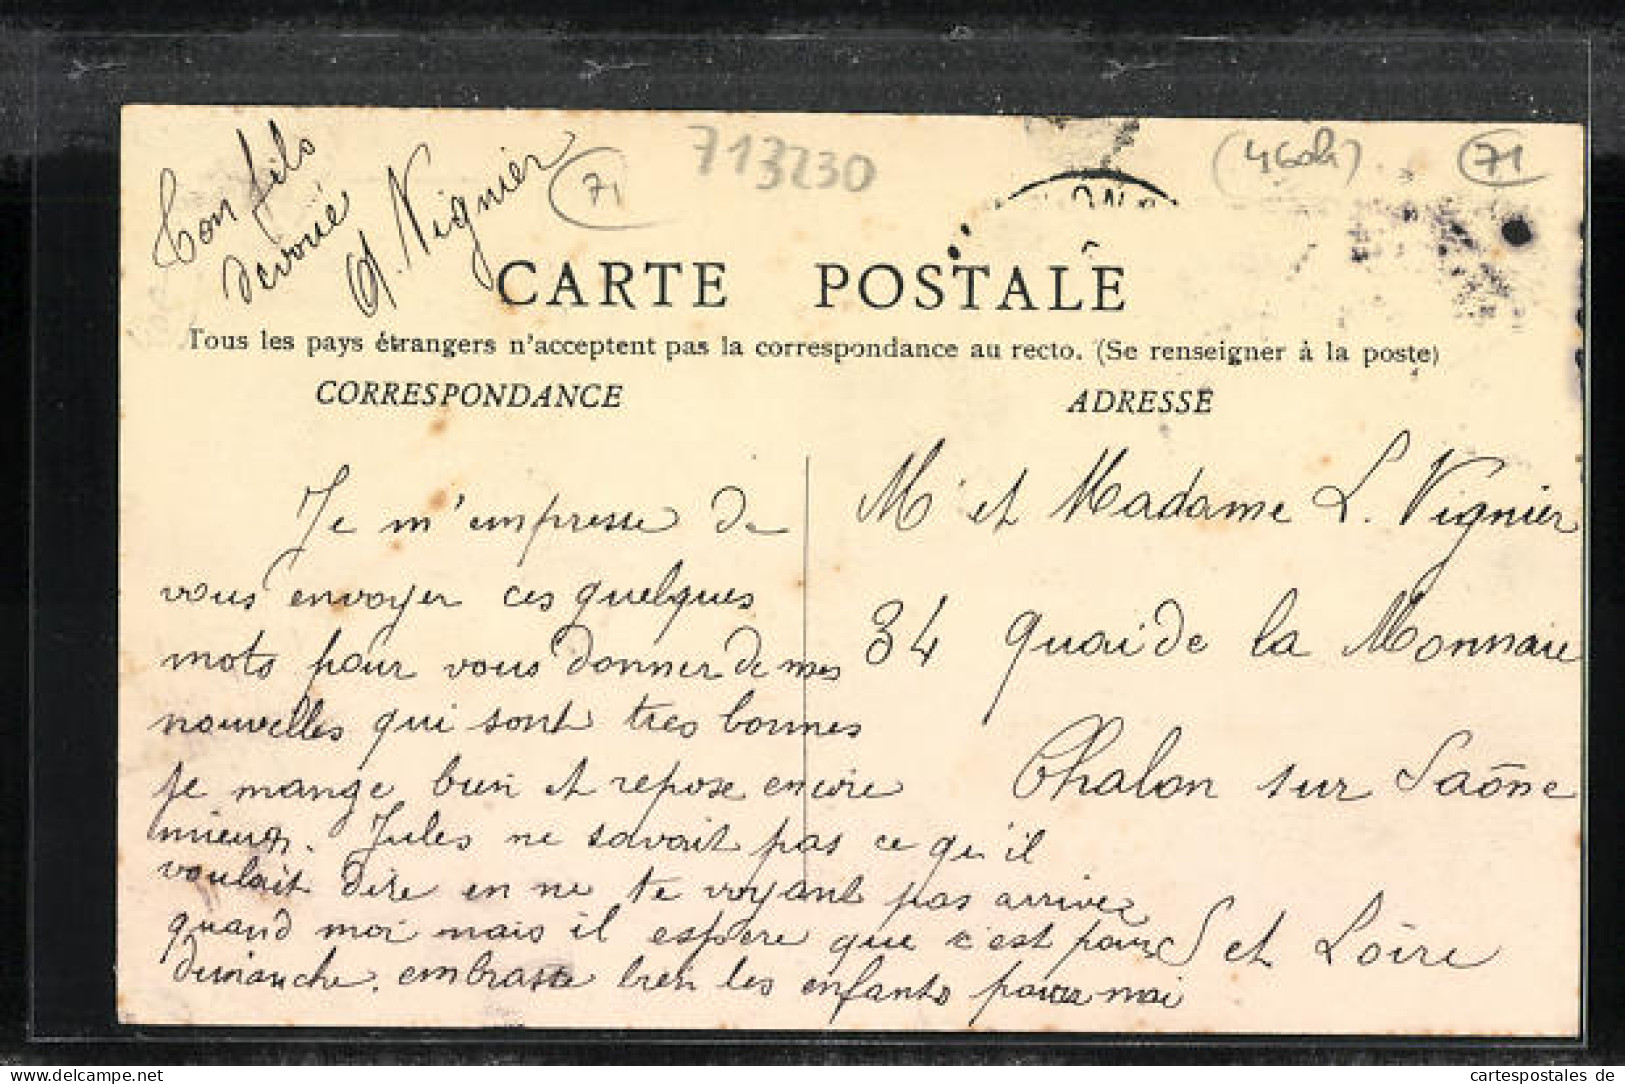 Ton fils
dévoué
A. Vignier
71
713230
71
CARTE POSTALE
Tous les pays étrangers n'acceptent pas la correspondance au recto. (Se renseigner à la poste)
CORRESPONDANCE
ADRESSE
Je m'empresse de
vous envoyer ces quelques
mots pour vous donner de mes
nouvelles qui sont tres bonnes
je mange bien et repose encore
mieux. Jules ne savait pas ce qu'il
voulait dire en ne te voyant pas arrivez
quand moi mais il espere que c'est pour
dimanche. embrasse bien les enfants pour moi
Mr et Madame L. Vignier
34 quai de la Monnaie
Chalon sur Saône
S et Loire
cartespostales de
www.cartespostales.de